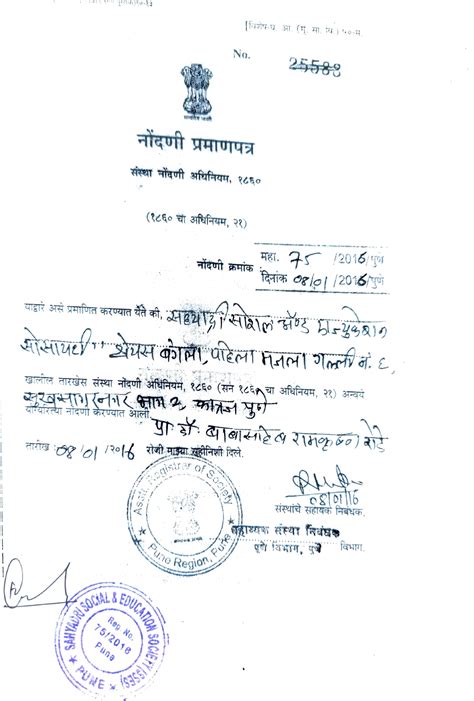 [विशेष-प. आ. (मु. सा. वि) ५०-म.
No. 25588
नोंदणी प्रमाणपत्र
संस्था नोंदणी अधिनियम, १८६०
(१८६० चा अधिनियम, २१)
महा. 75 /2016/पुणे
नोंदणी क्रमांक
दिनांक 08/01/2016/पुणे
याद्वारे असे प्रमाणित करण्यात येते की, सह्याद्री सोशल अँण्ड एज्युकेशन
सोसायटी" श्रेयस बंगला, पहिला मजला गल्ली नं. ६,
खालील तारखेस संस्था नोंदणी अधिनियम, १८६० (सन १८६० चा अधिनियम, २१) अन्वये
सुखसागरनगर भाग 2, कात्रज पुणे
योग्यरित्या नोंदणी करण्यात आली.
प्रा. डॉ. बाबासाहेब रामकृष्ण
तारीख : 08/01/2016 रोजी माझ्या सहीनिशी दिले.
संस्थांचे सहायक निबंधक,
सहाय्यक संस्था निबंधक
पुणे विभाग, पुणे विभाग.
Asstt. Registrar of Society
Pune Region, Pune
SAHYADRI SOCIAL & EDUCATION SOCIETY (SSES)
Reg No.
75/2016
Pune
PUNE